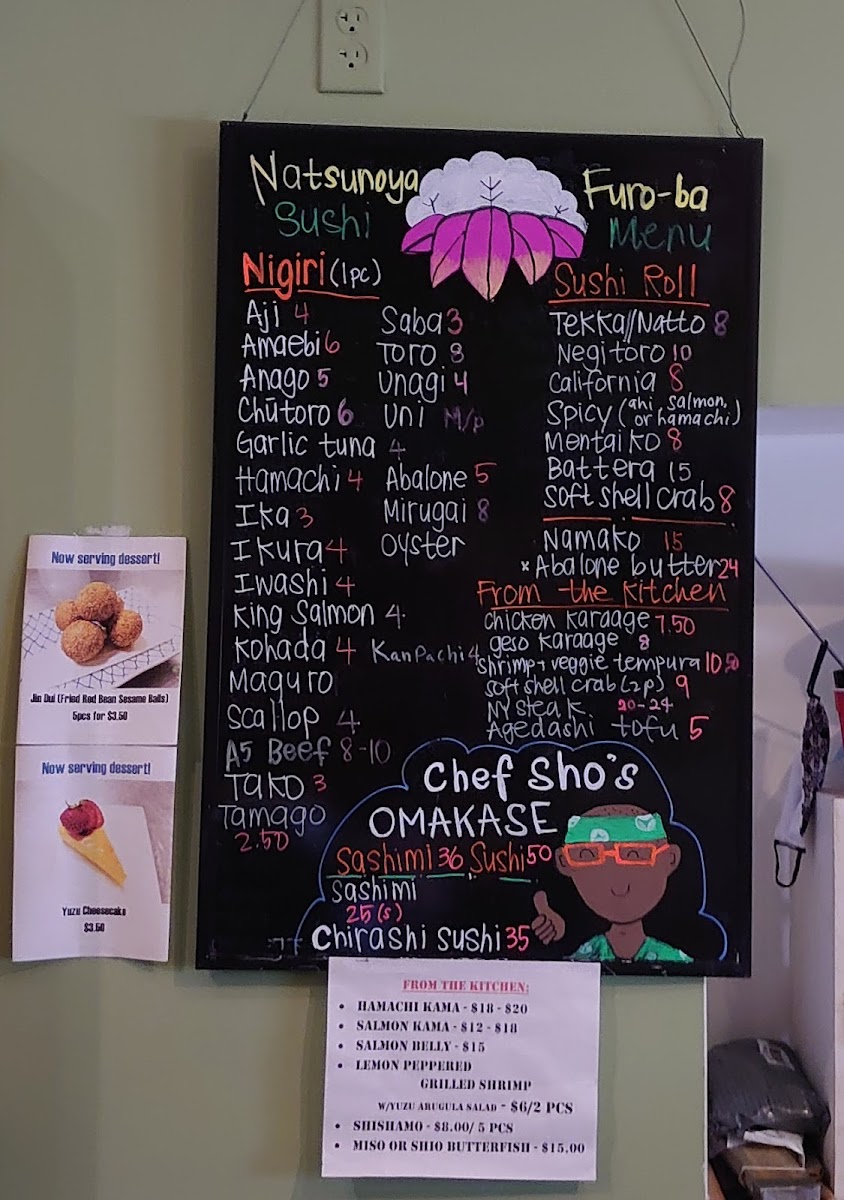 Natsunoya
Sushi
Furo-ba
Menu
Nigiri (1pc)
Aji 4
Amaebi 6
Anago 5
Chūtoro 6
Garlic tuna 4
Hamachi 4
Ika 3
Ikura 4
Iwashi 4
King Salmon 4
Kohada 4
Maguro
Scallop 4
A5 Beef 8-10
Tako 3
Tamago
2.50
Saba 3
Toro 8
Unagi 4
Uni M/p
Abalone 5
Mirugai 8
Oyster
Kanpachi 4
Sushi Roll
Tekka//Natto 8
Negitoro 10
California 8
Spicy (ahi, salmon,
or hamachi)
Mentaiko 8
Battera 15
Soft shell crab 8
Namako 15
* Abalone butter 24
From the Kitchen
Chicken karaage 7.50
geso karaage 8
Shrimp + veggie tempura 10.50
Soft shell crab (2p) 9
NY steak 20-24
Agedashi tofu 5
Chef Sho's
OMAKASE
Sashimi 36 Sushi 50
Sashimi
25 (s)
Chirashi sushi 35
Now serving dessert!
Jin Dui (Fried Red Bean Sesame Balls)
5pcs for $3.50
Now serving dessert!
Yuzu Cheesecake
$3.50
FROM THE KITCHEN:
• HAMACHI KAMA - $18 - $20
• SALMON KAMA - $12 - $18
• SALMON BELLY - $15
• LEMON PEPPERED
GRILLED SHRIMP
W/YUZU ARUGULA SALAD - $6/2 PCS
• SHISHAMO - $8.00/ 5 PCS
• MISO OR SHIO BUTTERFISH - $15.00